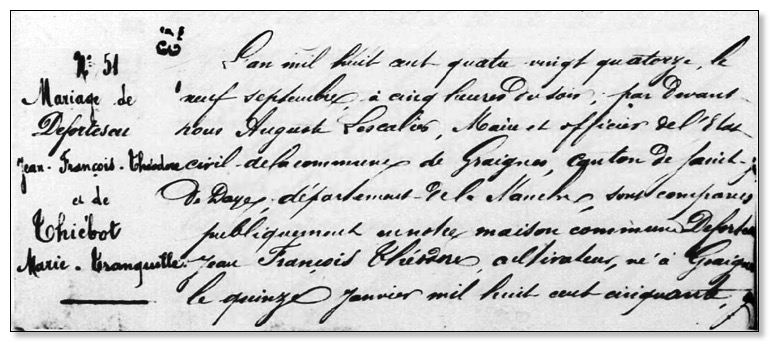 N° 51
Mariage de
Defortescu
Jean-François-Théodore
et de
Thiébot
Marie-Tranquille.
L'an mil huit cent quatre vingt quatorze, le
neuf septembre, à cinq heures du soir, par devant
nous Auguste Lescalier, Maire et officier de l'Etat
civil de la commune de Graignes, canton de Saint-
de Daye, département de la Manche, sont comparus
publiquement en notre maison commune Defortescu
Jean François Théodore, cultivateur, né à Graignes
le quinze Janvier mil huit cent cinquante,